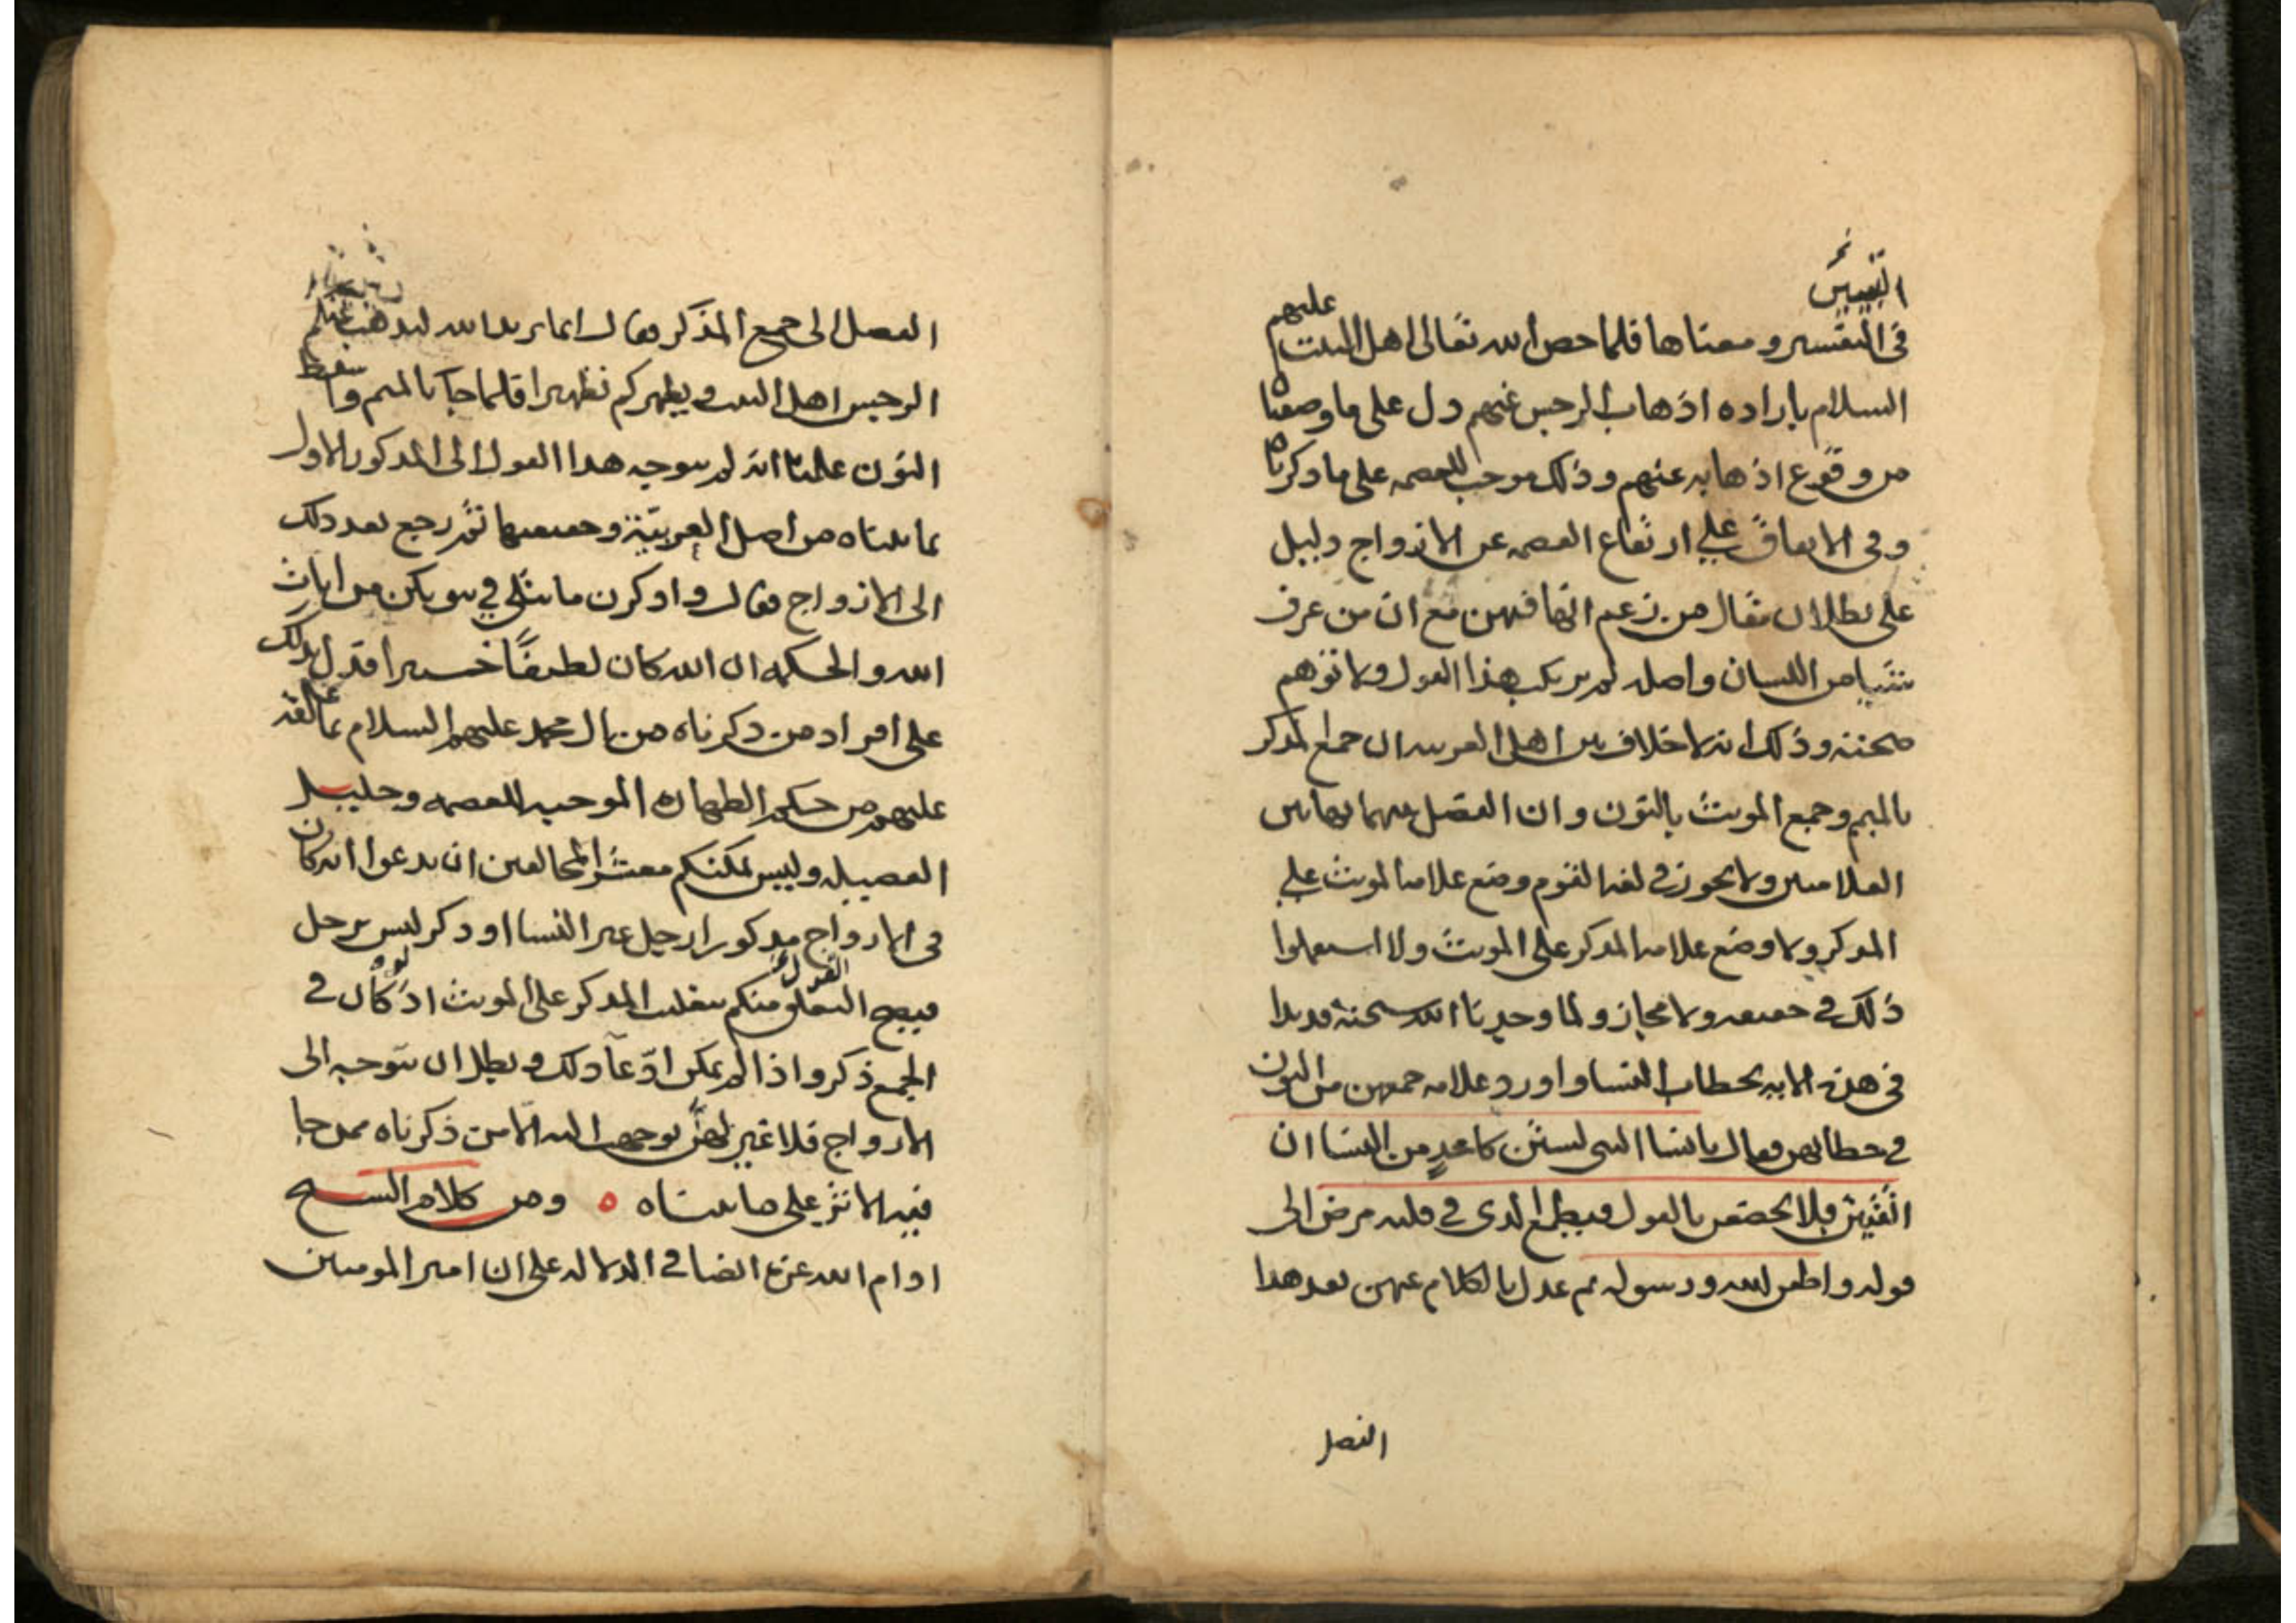 التفسير
في التفسير ومعناها فلما خص الله تعالى اهل البيت عليهم
السلام بارادة اذهاب الرجس عنهم دل على ما وصفناه
من وقوع اذهابه عنهم وذلك موجب للعصمة على ما ذكرناه
وفي الاتفاق على ارتفاع العصمة عن الازواج دليل
على بطلان مقال من زعم انها فيهن مع ان من عرف
شيئا من اللسان واصله لم يرتكب هذا القول ولا توهم
صحته وذلك انه لا خلاف بين اهل العربية ان جمع المذكر
بالميم وجمع المونث بالنون وان الفصل بينهما بهاتين
العلامتين ولا يجوز في لغة القوم وضع علامة المونث على
المذكر ولا وضع علامة المذكر على المونث ولا استعملوا
ذلك في حقيقة ولا مجاز ولما وجدنا الله سبحنه قد بدا
في هذه الاية بخطاب النسا واورد علامة جمعهن من النون
في خطابهن فقال يا نسا النبي لستن كاحد من النسا ان
اتقيتن فلا تخضعن بالقول فيطمع الذي في قلبه مرض الى
قوله واطعن الله ورسوله ثم عدل بالكلام عنهن بعد هذا
الفصل
الفصل الى جمع المذكر فقال انما يريد الله ليذهب عنكم
الرجس اهل البيت ويطهركم تطهيرا فلما جآ بالميم واسقط
النون علمنا انه لم يتوجه هذا القول الى المذكور الاول
بما بيناه من اصل العربية وحقيقتها ثم رجع بعد ذلك
الى الازواج فقال واذكرن ما يتلى في بيوتكن من ايات
الله والحكمة ان الله كان لطيفا خبيرا فدل بذلك
على افراد من ذكرناه من ال محمد عليهم السلام بما علقه
عليهم من حكم الطهارة الموجبة للعصمة وجليل
الفضيلة وليس يمكنكم معشر المخالفين ان يدعوا انه كان
في الازواج مذكورا رجل غير النسا او ذكر ليس برجل
فيصح التعلق منكم بتغليب المذكر على المونث اذ كان في
الجمع ذكر واذا لم يمكن ادعآ ذلك وبطل ان يتوجه الى
الازواج فلا غير لهن توجهت اليه الا من ذكرناه ممن جا
فيه الاثر على ما بيناه ه ومن كلام الشيخ
ادام الله عزه ايضا في الدلالة على ان امير المومنين